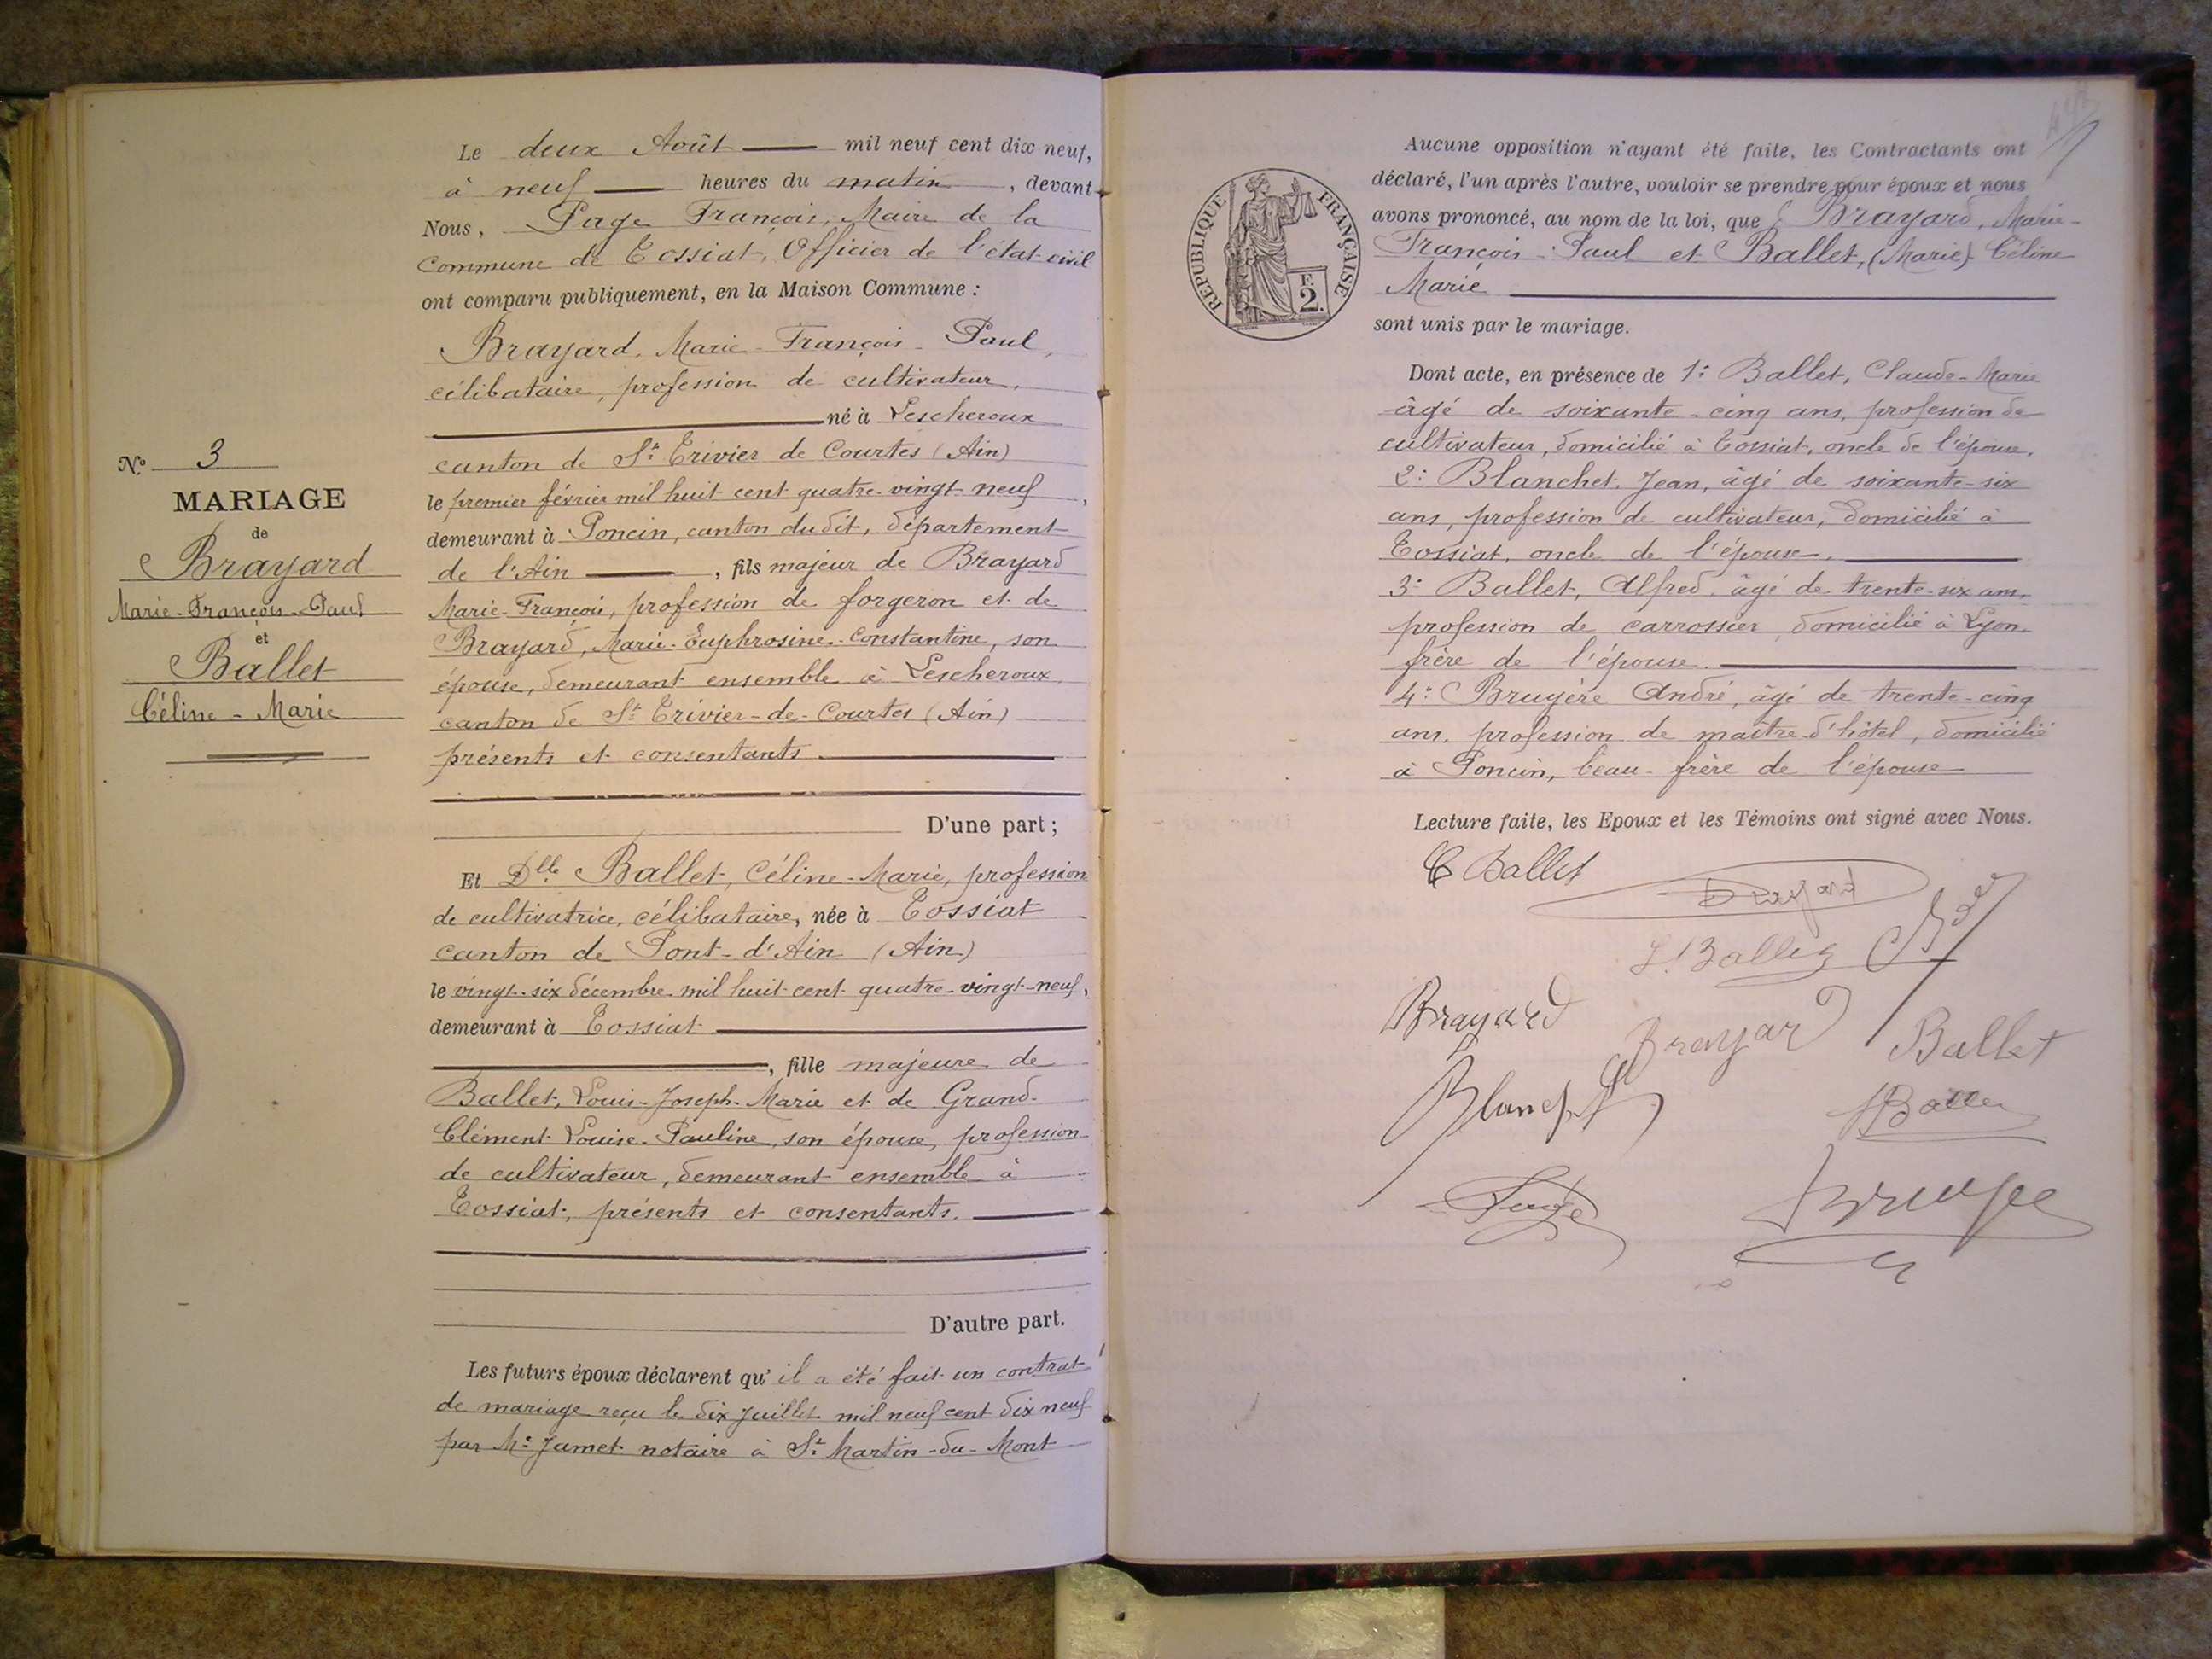 Le deux Août mil neuf cent dix-neuf,
à neuf heures du matin, devant
Nous, Page François, Maire de la
commune de Tossiat, Officier de l'état-civil
ont comparu publiquement, en la Maison Commune :
Brayard, Marie-François-Paul,
célibataire, profession de cultivateur,
né à Lescheroux
canton de St Trivier de Courtes (Ain)
le premier février mil huit cent quatre-vingt-neuf,
demeurant à Poncin, canton dudit, département
de l'Ain, fils majeur de Brayard
Marie-François, profession de forgeron et de
Brayard, Marie-Euphrosine-Constantine, son
épouse, demeurant ensemble à Lescheroux,
canton de St Trivier-de-Courtes (Ain)
présents et consentants.
D'une part ;
Et Dlle Ballet, Céline-Marie, profession
de cultivatrice, célibataire, née à Tossiat
canton de Pont-d'Ain (Ain)
le vingt-six décembre mil huit cent quatre-vingt-neuf,
demeurant à Tossiat
, fille majeure de
Ballet, Louis-Joseph-Marie et de Grand-
Clément Louise-Pauline, son épouse, profession
de cultivateur, demeurant ensemble à
Tossiat, présents et consentants.
D'autre part.
Les futurs époux déclarent qu'il a été fait un contrat
de mariage reçu le dix Juillet mil neuf cent dix neuf
par Me Jamet notaire à St Martin-du-Mont
No 3
MARIAGE
de
Brayard
Marie-François-Paul
et
Ballet
Céline-Marie
REPUBLIQUE FRANÇAISE
F.
2.
Aucune opposition n'ayant été faite, les Contractants ont
déclaré, l'un après l'autre, vouloir se prendre pour époux et nous
avons prononcé, au nom de la loi, que Brayard, Marie-
François-Paul et Ballet, (Marie) Céline
Marie
sont unis par le mariage.
Dont acte, en présence de 1° Ballet, Claude-Marie
âgé de soixante-cinq ans, profession de
cultivateur, domicilié à Tossiat, oncle de l'épouse,
2° Blanchet, Jean, âgé de soixante-six
ans, profession de cultivateur, domicilié à
Tossiat, oncle de l'épouse.
3° Ballet, Alfred, âgé de trente-six ans,
profession de carrossier, domicilié à Lyon,
frère de l'épouse.
4° Bruyère André, âgé de trente-cinq
ans, profession de maître d'hôtel, domicilié
à Poncin, beau-frère de l'épouse
Lecture faite, les Epoux et les Témoins ont signé avec Nous.
C Ballet
Brayard
L. Ballet
Brayard
Brayard
Ballet
Blanchet
Ballet
Page